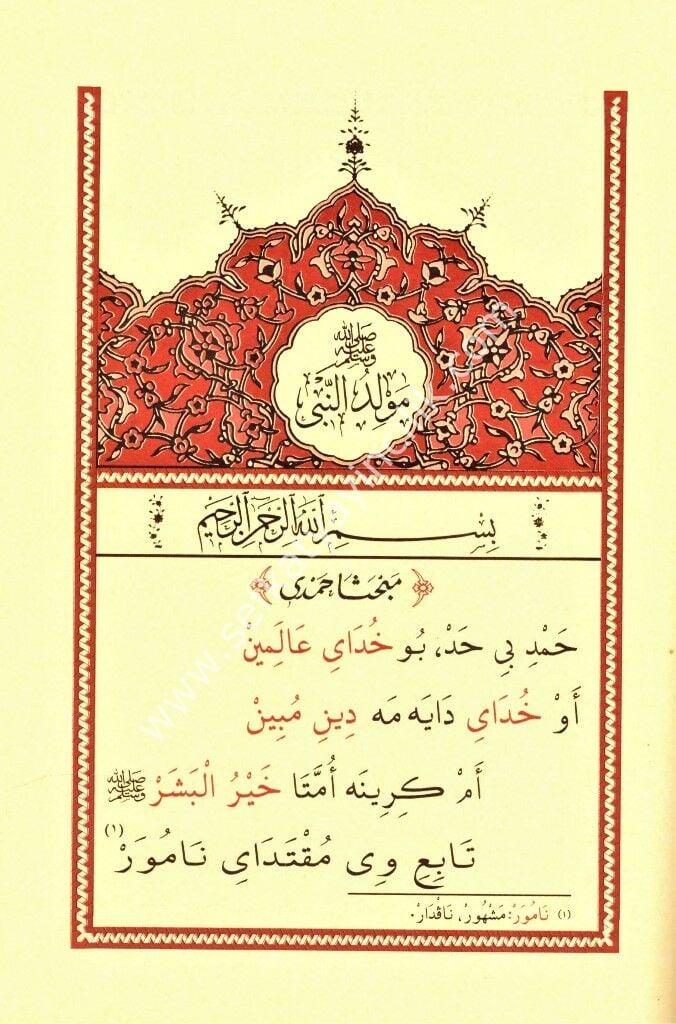 ﷺ
مَوْلِدُ النَّبِى
بِسْمِ اللهِ الرَّحْمٰنِ الرَّحِيمِ
مَبْحَثَا حَمْدِى
حَمْدِ بِي حَدْ، بُو خُدَايِ عَالَمِينْ
أَوْ خُدَايِ دَايَه مَه دِينِ مُبِينْ
أَمْ كِرِينَه أُمَّتَا خَيْرُ الْبَشَرْ ﷺ
تَابِعِ وِي مُقْتَدَايِ نَامُورَرْ (١)
(١) نَامُورَرْ: مَشْهُورْ، نَاڤْدَارْ.